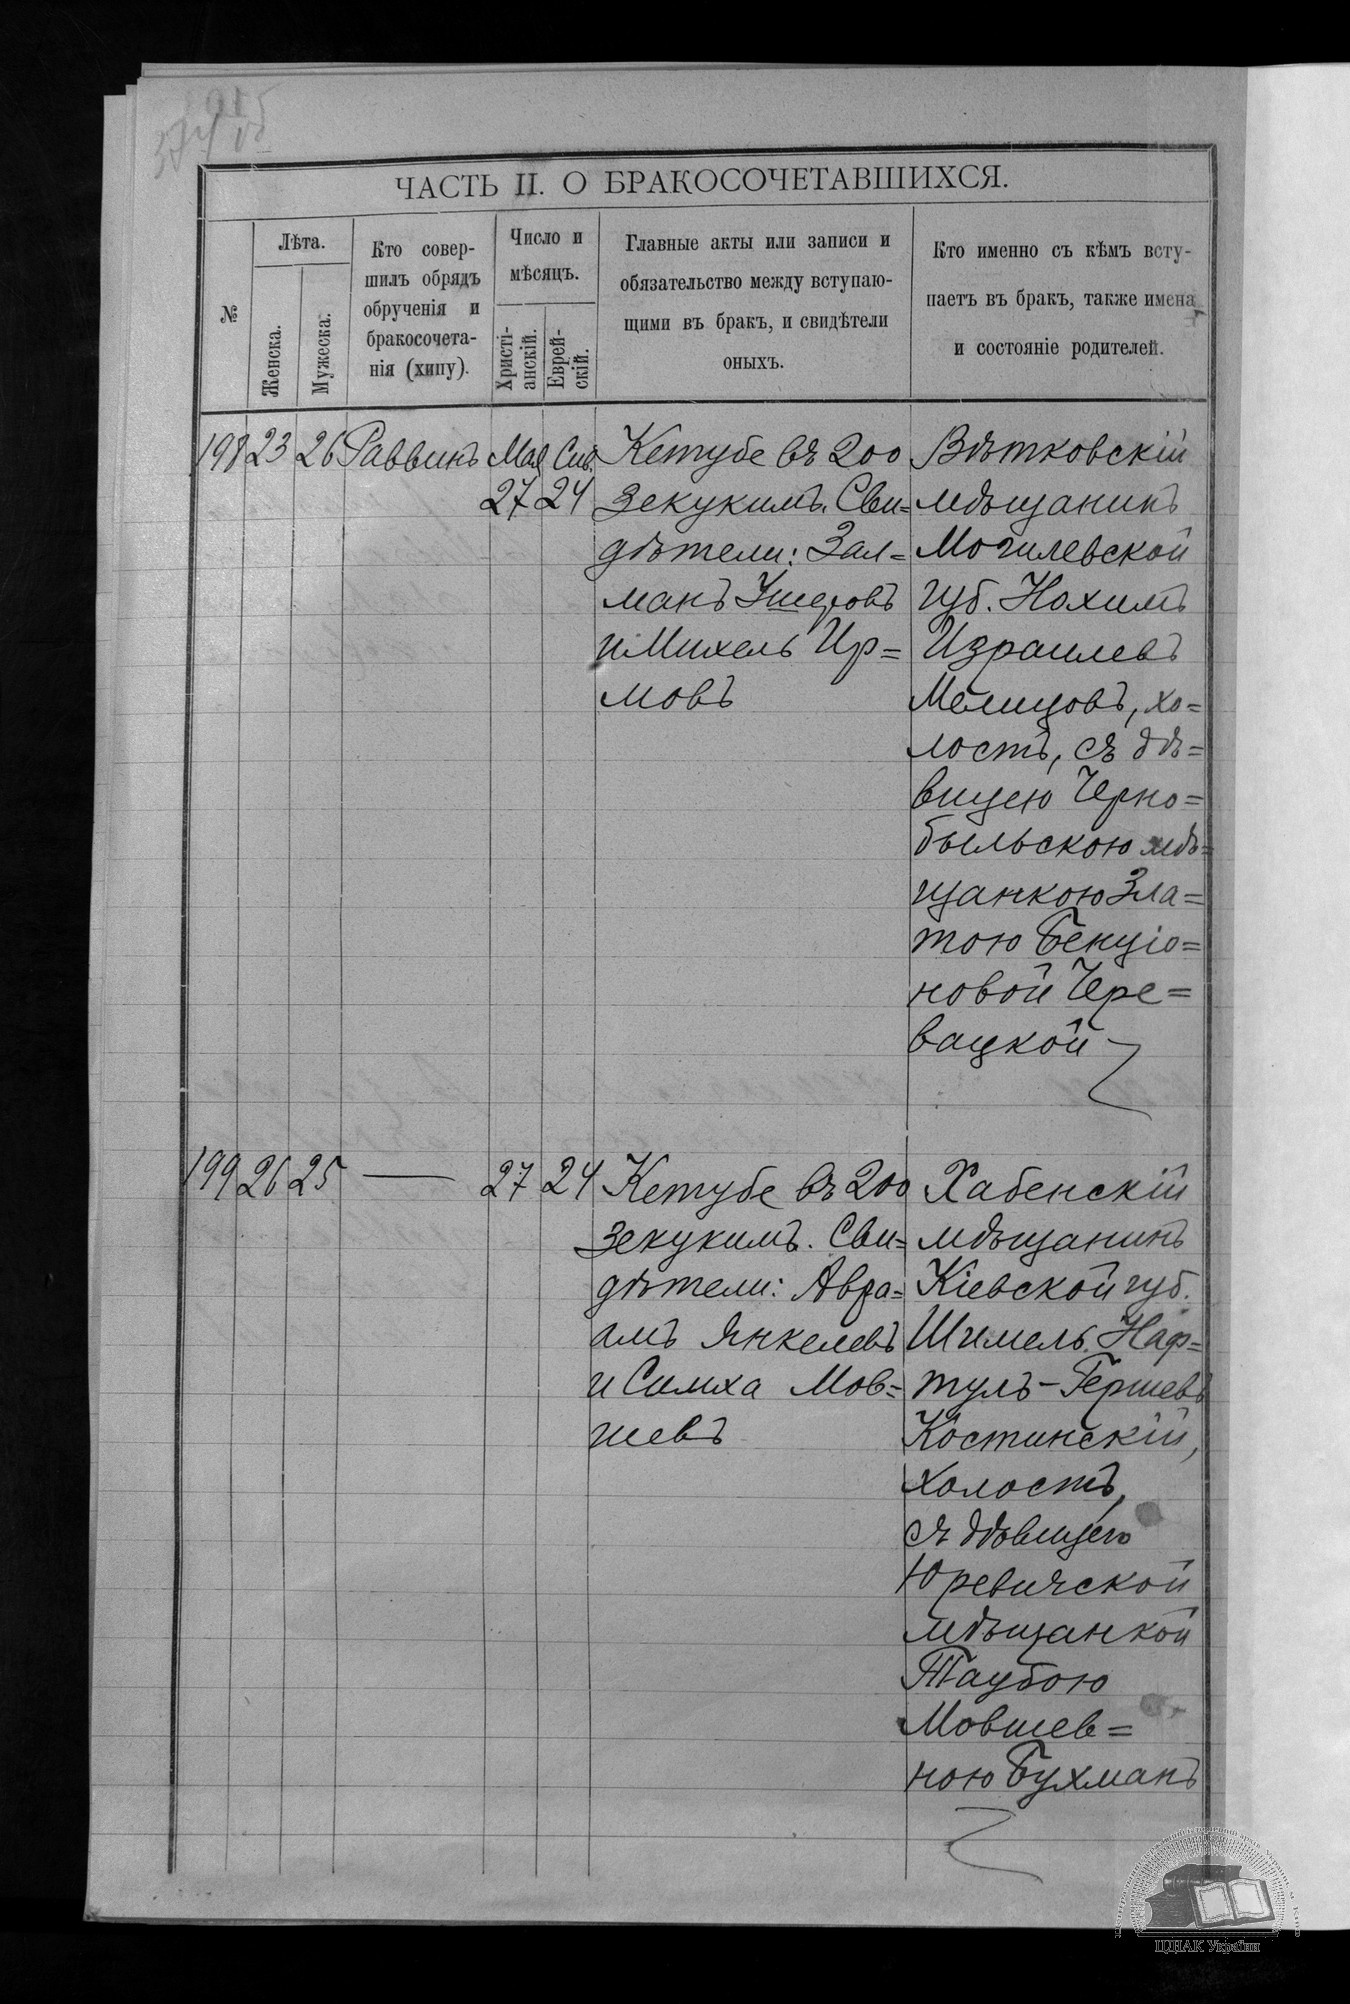 ЧАСТЬ II. О БРАКОСОЧЕТАВШИХСЯ.
№
Лѣта.
Женска.
Мужеска.
Кто совер-
шилъ обрядъ
обрученія и
бракосочета-
нія (хипу).
Число и
мѣсяцъ.
Христі-
анскій.
Еврей-
скій.
Главные акты или записи и
обязательство между вступаю-
щими въ бракъ, и свидѣтели
оныхъ.
Кто именно съ кѣмъ всту-
паетъ въ бракъ, также имена
и состояніе родителей.
198 23 26 Раввинъ Мая Сив.
27 24
Кетубе въ 200
зекукимъ. Сви=
дѣтели: Зал=
манъ Ушеровъ
и Михель Ир=
мовъ
Вѣтковскій
мѣщанинъ
Могилевской
губ. Нохимъ
Израилевъ
Мелицовъ, хо=
лостъ, съ дѣ=
вицею Черно=
быльскою мѣ=
щанкою Зла=
тою Бенціо=
новой Чере=
вацкой
199 26 25 — 27 24
Кетубе въ 200
зекукимъ. Сви=
дѣтели: Авра=
амъ Янкелевъ
и Симха Мов=
шевъ
Хабенскій
мѣщанинъ
Кіевской губ.
Шимель Наф=
тулъ-Гершевъ
Костинскій,
холостъ,
съ дѣвицею
Юревичской
мѣщанкой
Таубою
Мовшев=
ною Бухманъ
ЦДІАК України